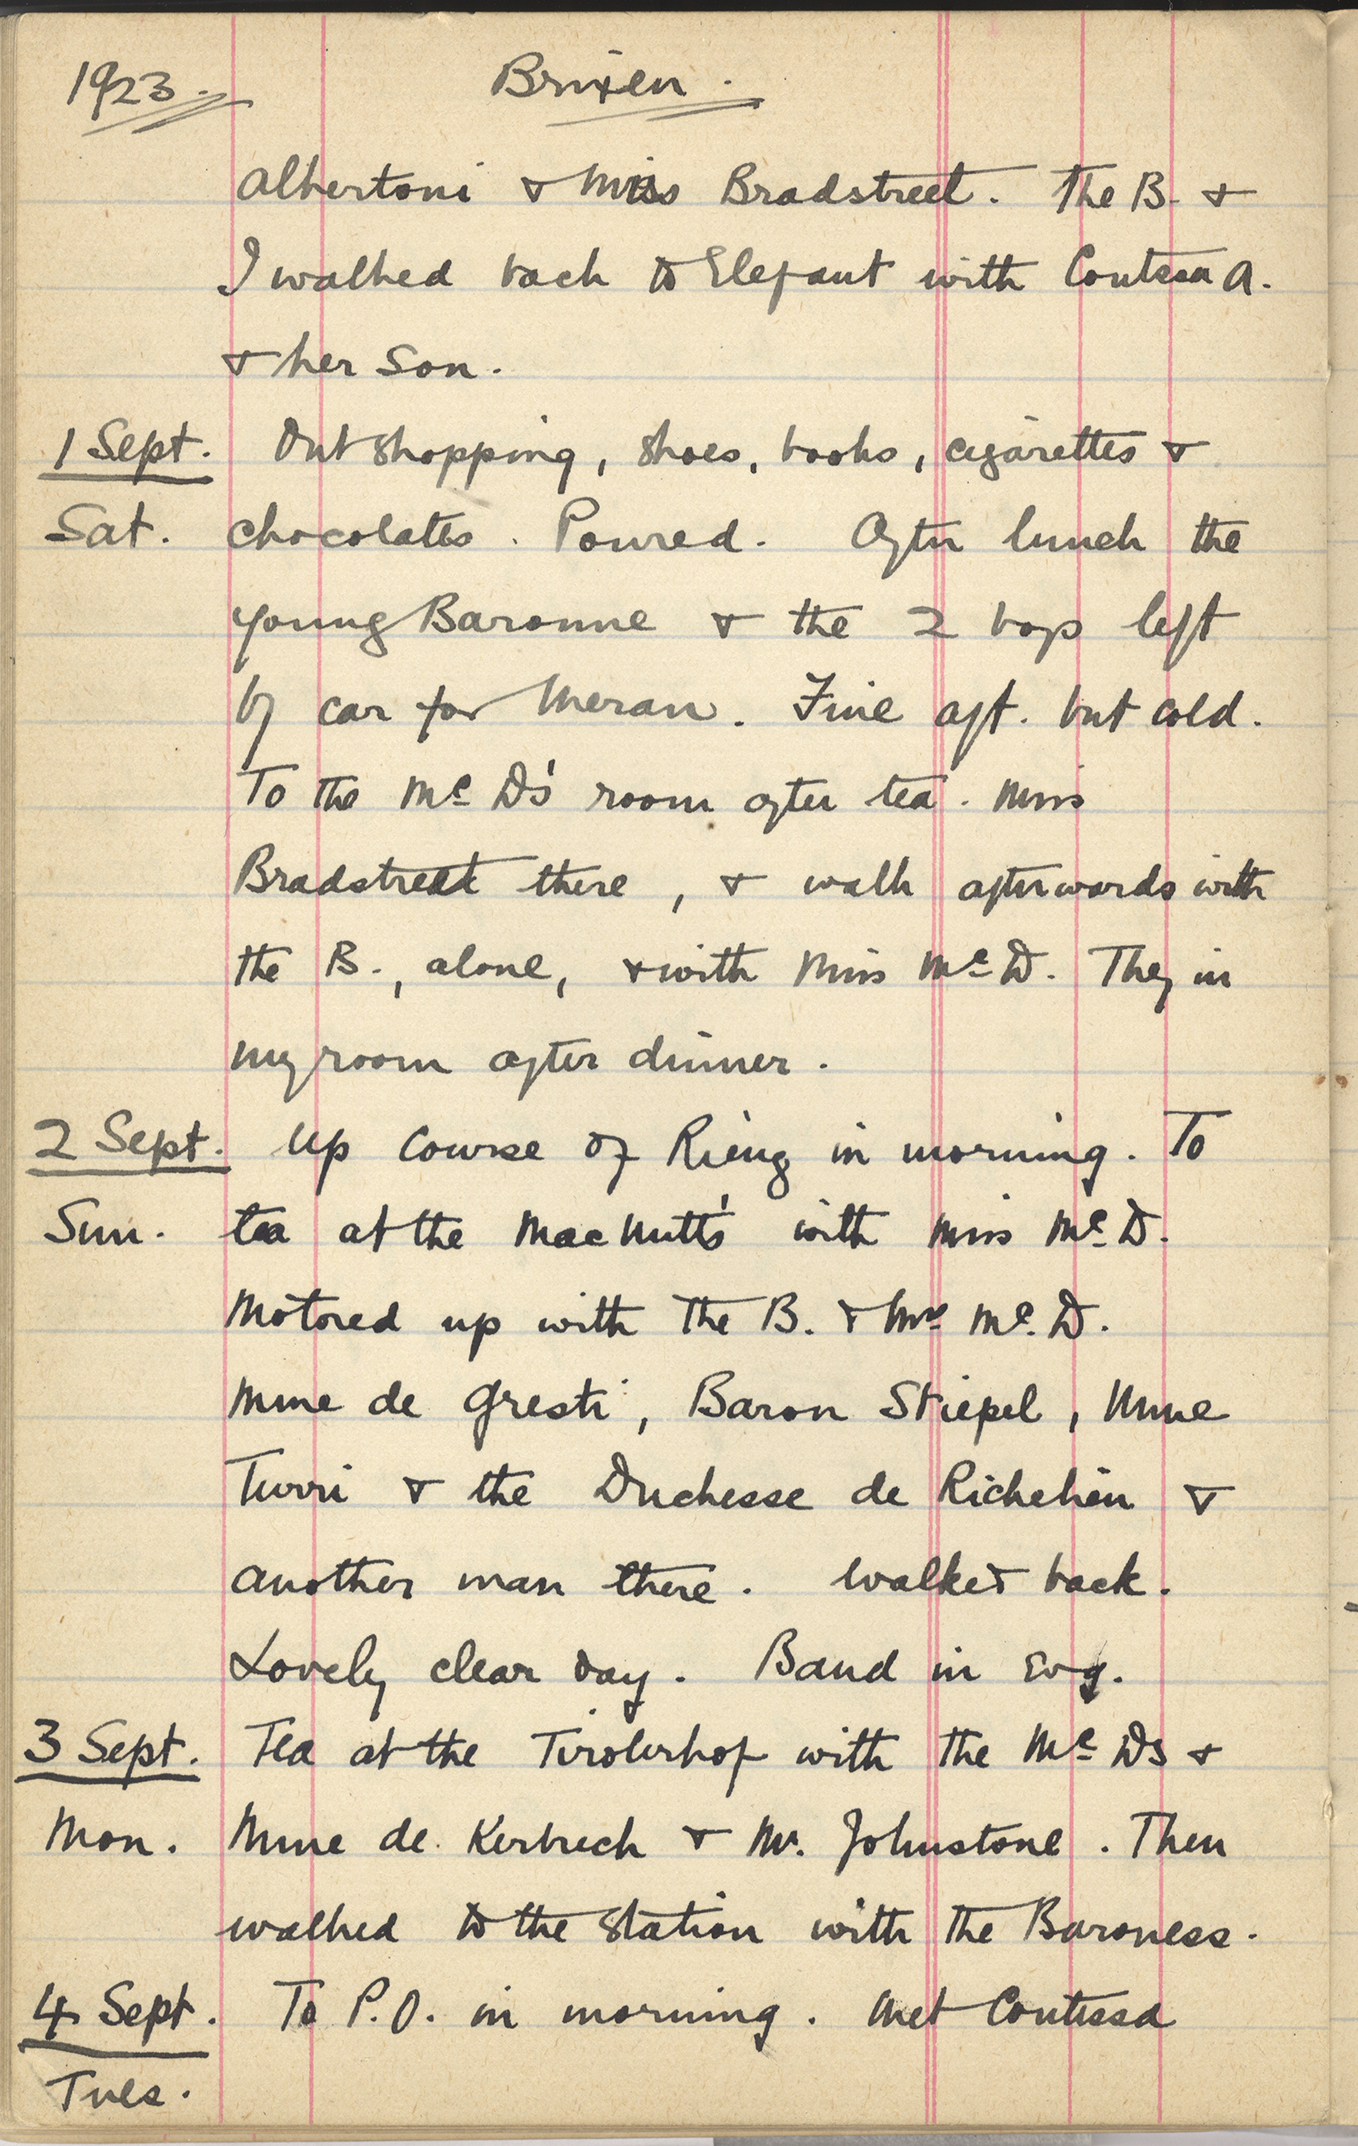 1923. Brixen.
Albertoni & Miss Bradstreet. The B. &
I walked back to Elefant with Contessa A.
& her son.
1 Sept. Out shopping, shoes, books, cigarettes &
Sat. chocolates. Poured. After lunch the
young Baronne & the 2 boys left
by car for Meran. Fine aft. but cold.
To the McD's room after tea. Miss
Bradstreet there, & walk afterwards with
the B., alone, & with Miss McD. They in
my room after dinner.
2 Sept. Up course of Rienz in morning. To
Sun. tea at the MacNutt's with Miss McD.
Motored up with the B. & Mrs McD.
Mme de Gresti, Baron Stiepel, Mme
Turri & the Duchesse de Richelieu &
another man there. Walked back.
Lovely clear day. Band in evg.
3 Sept. Tea at the Tirolerhof with the McDs &
Mon. Mme de Kerbrech & Mr. Johnstone. Then
walked to the station with the Baroness.
4 Sept. To P.O. in morning. Met Contessa
Tues.